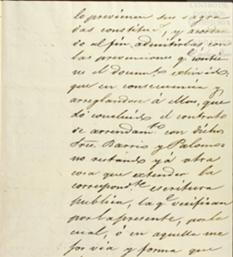 lo previenen sus sagra
das constitucs, y acordan
do al fin, admitirlas, con
las prevenciones qe contie
ne el documto exhivido
que en consecuencia y
arreglandose á ellas, que
dó concluido el contrato
de arrendamto con dichos
Sres. Barrio y Palomar
no restando yá otra
cosa que extender la
correspondte escritura
publica, la qe verifican
por la presente, por la
cual, ó en aquella me
jor via y forma que